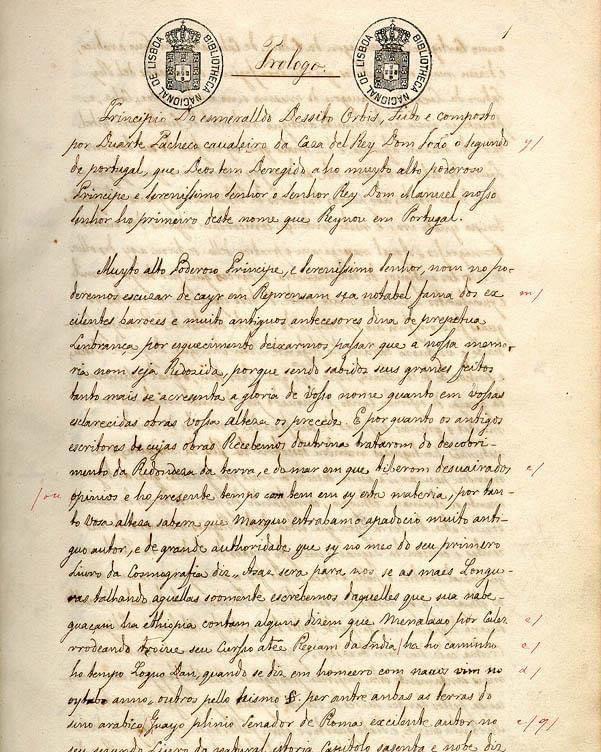 1
BIBLIOTHECA NACIONAL DE LISBOA
BIBLIOTHECA NACIONAL DE LISBOA
Prologo.
Principio Do esmeralldo Dessito Orbis, feito e composto
por Duarte Pacheco cavaleiro da Caza del Rey Dom João o segundo
de portugal, que Deos tem Deregido a ho muyto alto poderoso
Principe e serenissimo senhor o senhor Rey Dom Manuel nosso
senhor ho primeiro deste nome que Reynou em Portugal.
Muyto alto Poderoso Principe, e serenissimo senhor, nom no po-
deremos escuzar de cayr em Reprensam sea notabel fama dos ex
cilentes baroees e muito antiguos antecesores dina de prepetua
Lenbrança por esquecimento deixarmos passar que a nossa memo,
ria nom seja Redozida, porque sendo sabidos seus grandes feitos
tanto mais se acresenta a gloria de vosso nome quanto em vossas
esclarecidas obras vossa alteza os precede. E por quanto os antigos
escritores de cujas obras Recebemos doutrina trataram do descobri-
mento da Redondeza da terra, e do mar em que tiberom desvairados
opinios e ho presente tempo com tem em sy esta materia, por tan-
to vosa alteza sabera que Marquo estrabam capadocio muito anti-
guo autor, e de grande authoridade que sy no meo do seu primeiro
Livro da Cosmografia diz, Asaz sera para nos se as maes Longu-
ras talhando aquellas soomente escrebemos daquelles que sua nabe-
guaçam ha ethiopia contam alguns dizem que Menalaao por Calez
rrodeando trouve seu Curso atee Regiam da India, ha ho caminho
ho tempo Loguo Dan, quando se diz em homeero com navios vim no
oytabo anno, outros pello ismo per antre ambas as terras do
sino arabico, Guayo plinio senador de Roma excelente autor no
seu segundo Livro da natural istoria Capitolo sasenta e nobe diz
y/
m/
e/
/ou
e/
e/
d/
e/9/